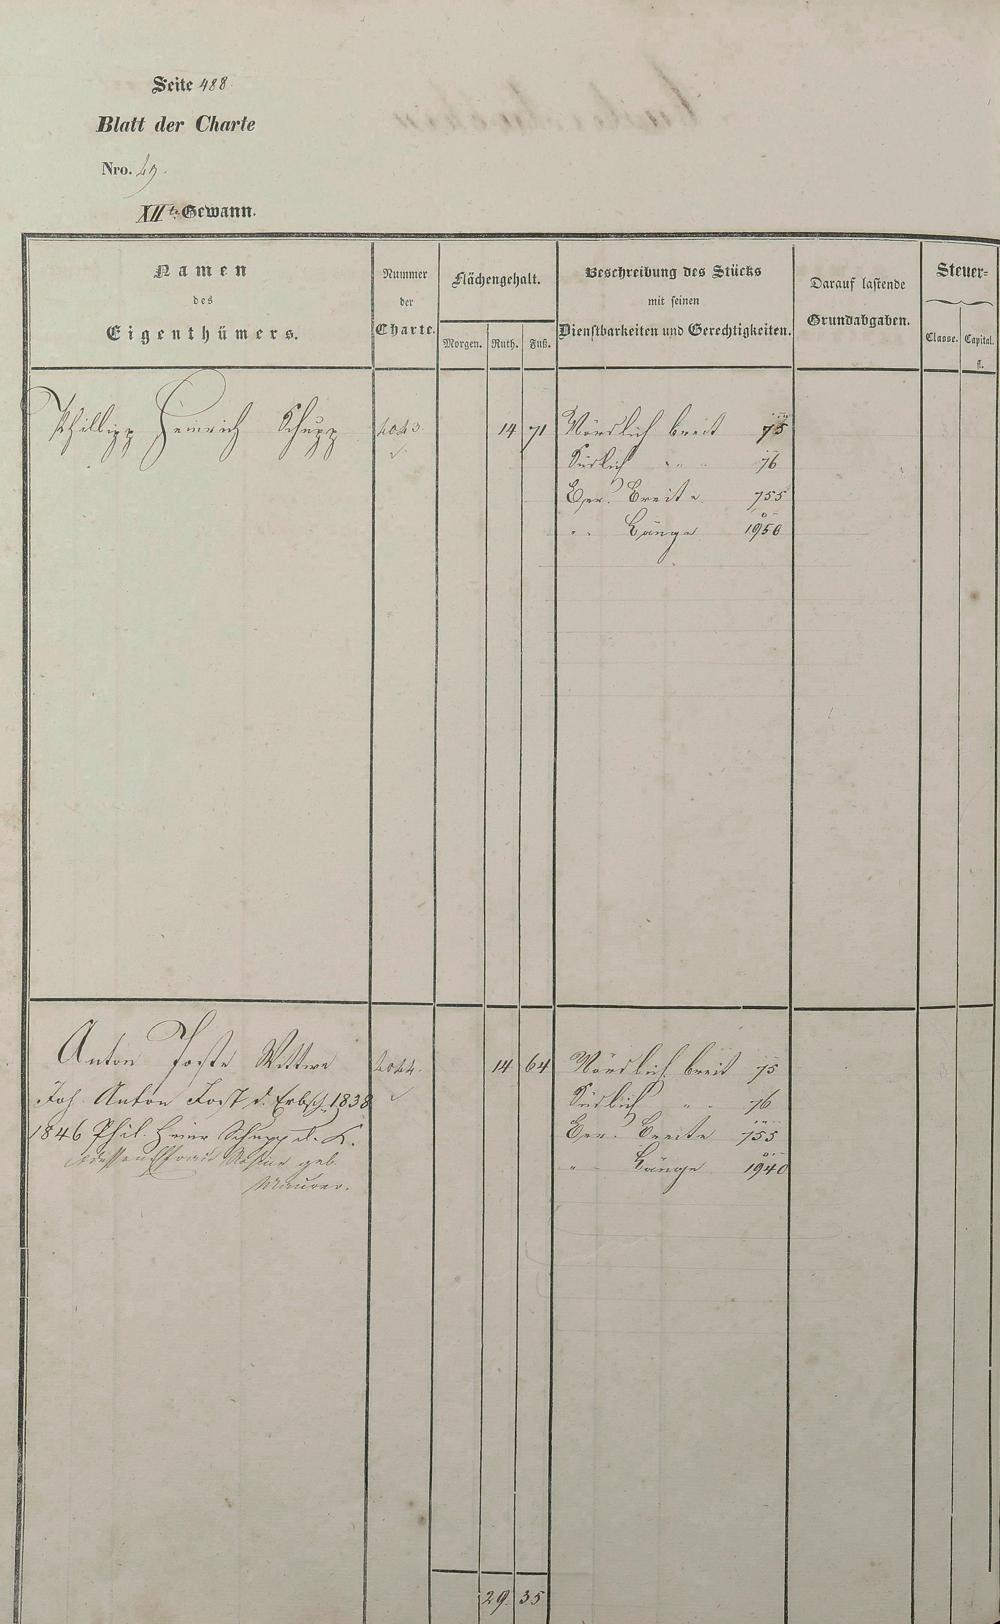 Seite 488.
Blatt der Charte
Nro. 49.
XIIte Gewann.
Namen
des
Eigenthümers.
Nummer
der
Charte.
Flächengehalt.
Morgen. Ruth. Fuß.
Beschreibung des Stücks
mit seinen
Dienstbarkeiten und Gerechtigkeiten.
Darauf lastende
Grundabgaben.
Steuer-
Classe. Capital.
fl.
Phillipp Heinrich Schupp 2023. 14 71 Nördlich breit 75
Südlich " " 76
Ger. Breite 755
" Länge 1950
Anton Jost Wittwe 2024. 14 64 Nördlich breit 75
Joh. Anton Jost d. Erbsch. 1838 Südlich " " 76
1846 Phil. Heinr Schupp d. K. Ger. Breite 755
dessen Frau geb. " Länge 1940
Maurer.
29. 35